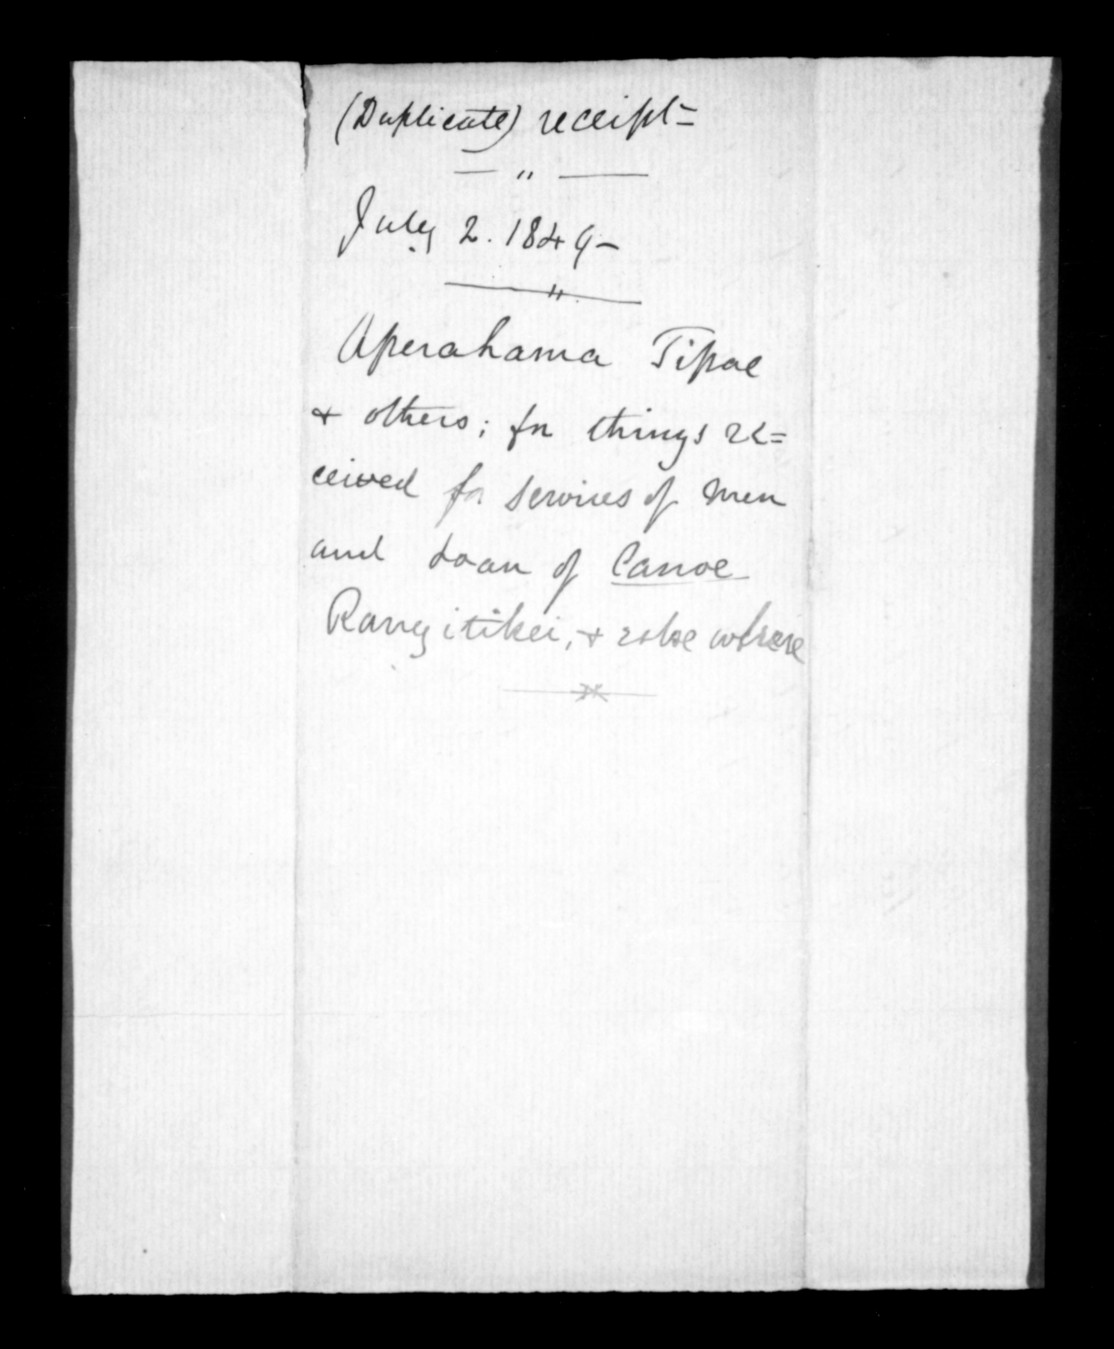 (Duplicate) receipt-
— " —
July 2. 1849-
Aperahama Tipae
& others; for things re=
ceived for services of men
and loan of Canoe
Rangitikei, & else where